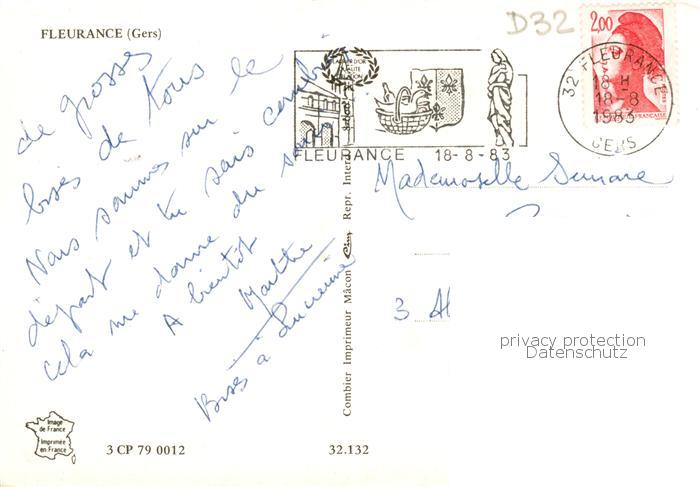 FLEURANCE (Gers)
D32
de grosses
bises de tous le
Nous sommes sur le
départ et tu sais combien
cela me donne du souci
A bientôt
Marthe
Bises à Lucienne
FLEURANCE 18-8-83
2,00
32 FLEURANCE
18 H
18-8
1983
GERS
Mademoiselle
3 Al
privacy protection
Datenschutz
Combier Imprimeur Mâcon Cim Repr. Inter
Image
de France
Imprimée
en France
3 CP 79 0012
32.132